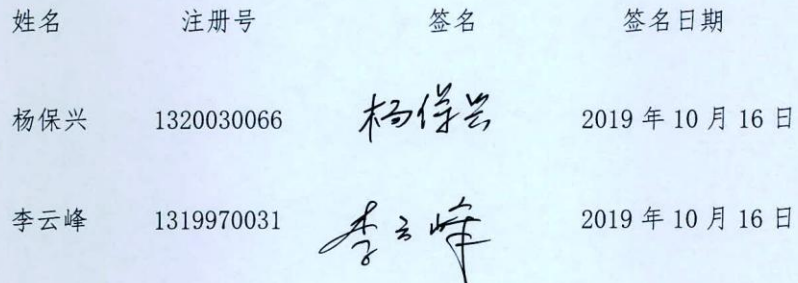 姓名 注册号 签名 签名日期
杨保兴 1320030066 杨保兴 2019年10月16日
李云峰 1319970031 李云峰 2019年10月16日